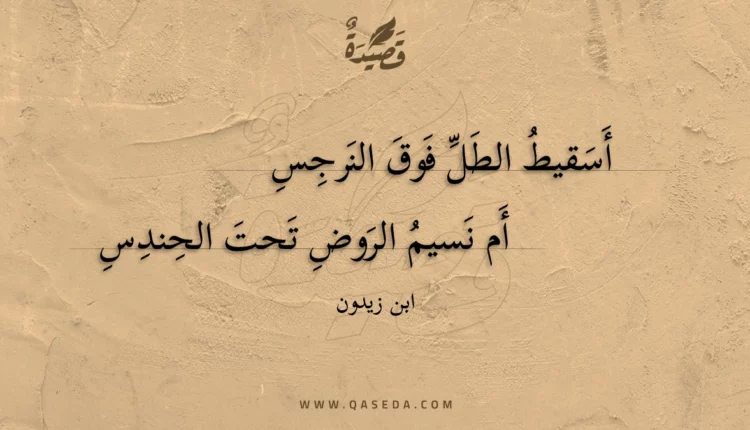 قَصِيدَةٌ
أَسَقيطُ الطَلِّ فَوقَ النَرجِسِ
أَم نَسيمُ الرَوضِ تَحتَ الحِندِسِ
ابن زيدون
WWW.QASEDA.COM